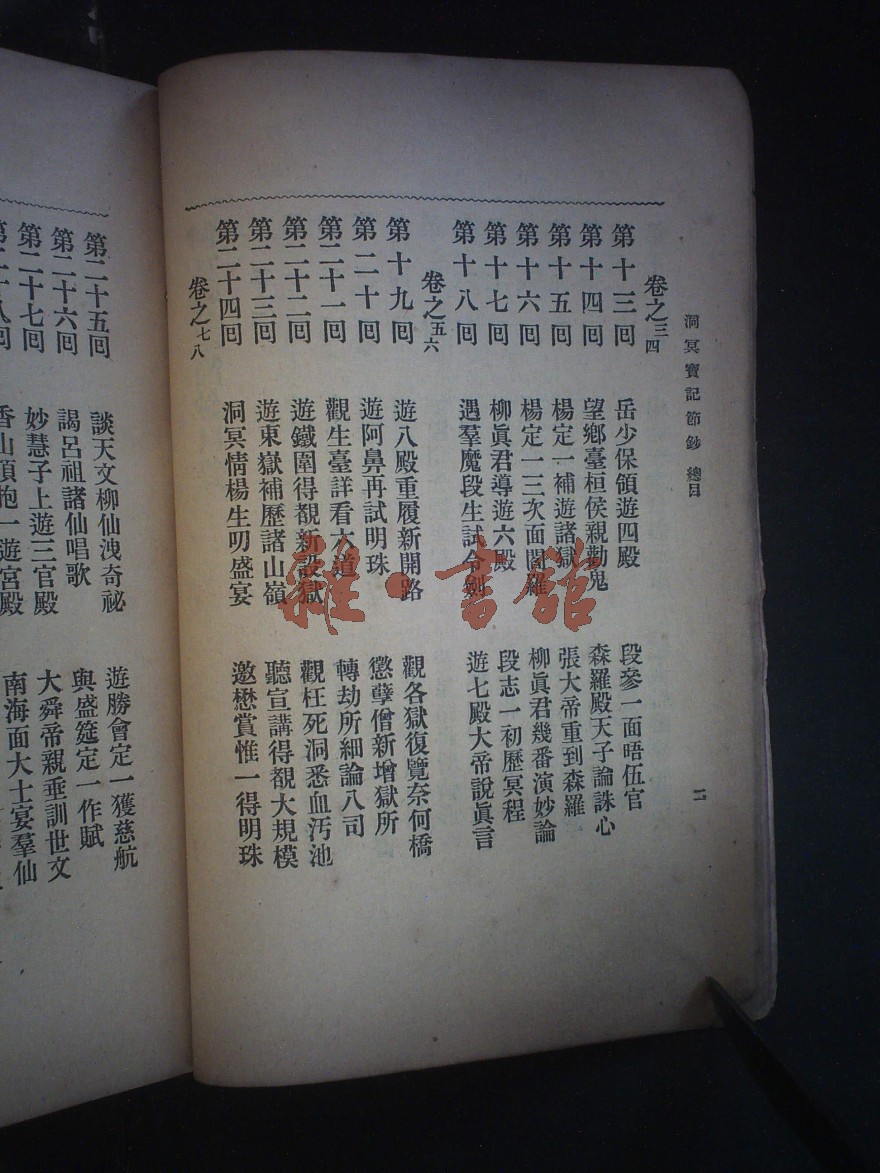 洞冥寶記節鈔 總目
二
卷之三四
第十三囘 岳少保領遊四殿 段參一面晤伍官
第十四囘 望鄉臺桓侯親勤鬼 森羅殿天子論誅心
第十五囘 楊定一補遊諸獄 張大帝重到森羅
第十六囘 楊定一三次面閻羅 柳眞君幾番演妙論
第十七囘 柳眞君導遊六殿 段志一初歷冥程
第十八囘 遇羣魔段生試令劍 遊七殿大帝說眞言
卷之五六
第十九囘 遊八殿重履新開路 觀各獄復覽奈何橋
第二十囘 遊阿鼻再試明珠 懲孽僧新增獄所
第二十一囘 觀生臺詳看六道 轉劫所細論八司
第二十二囘 遊鐵圍得覩新設獄 觀枉死洞悉血汚池
第二十三囘 遊東嶽補歷諸山嶺 聽宣講得覩大規模
第二十四囘 洞冥情楊生叨盛宴 邀懋賞惟一得明珠
卷之七八
第二十五囘 談天文柳仙洩奇祕 遊勝會定一獲慈航
第二十六囘 謁呂祖諸仙唱歌 與盛筵定一作賦
第二十七囘 妙慧子上遊三官殿 大舜帝親垂訓世文
第二十八囘 香山頂抱一遊宮殿 南海面大士宴羣仙
雜·書舘